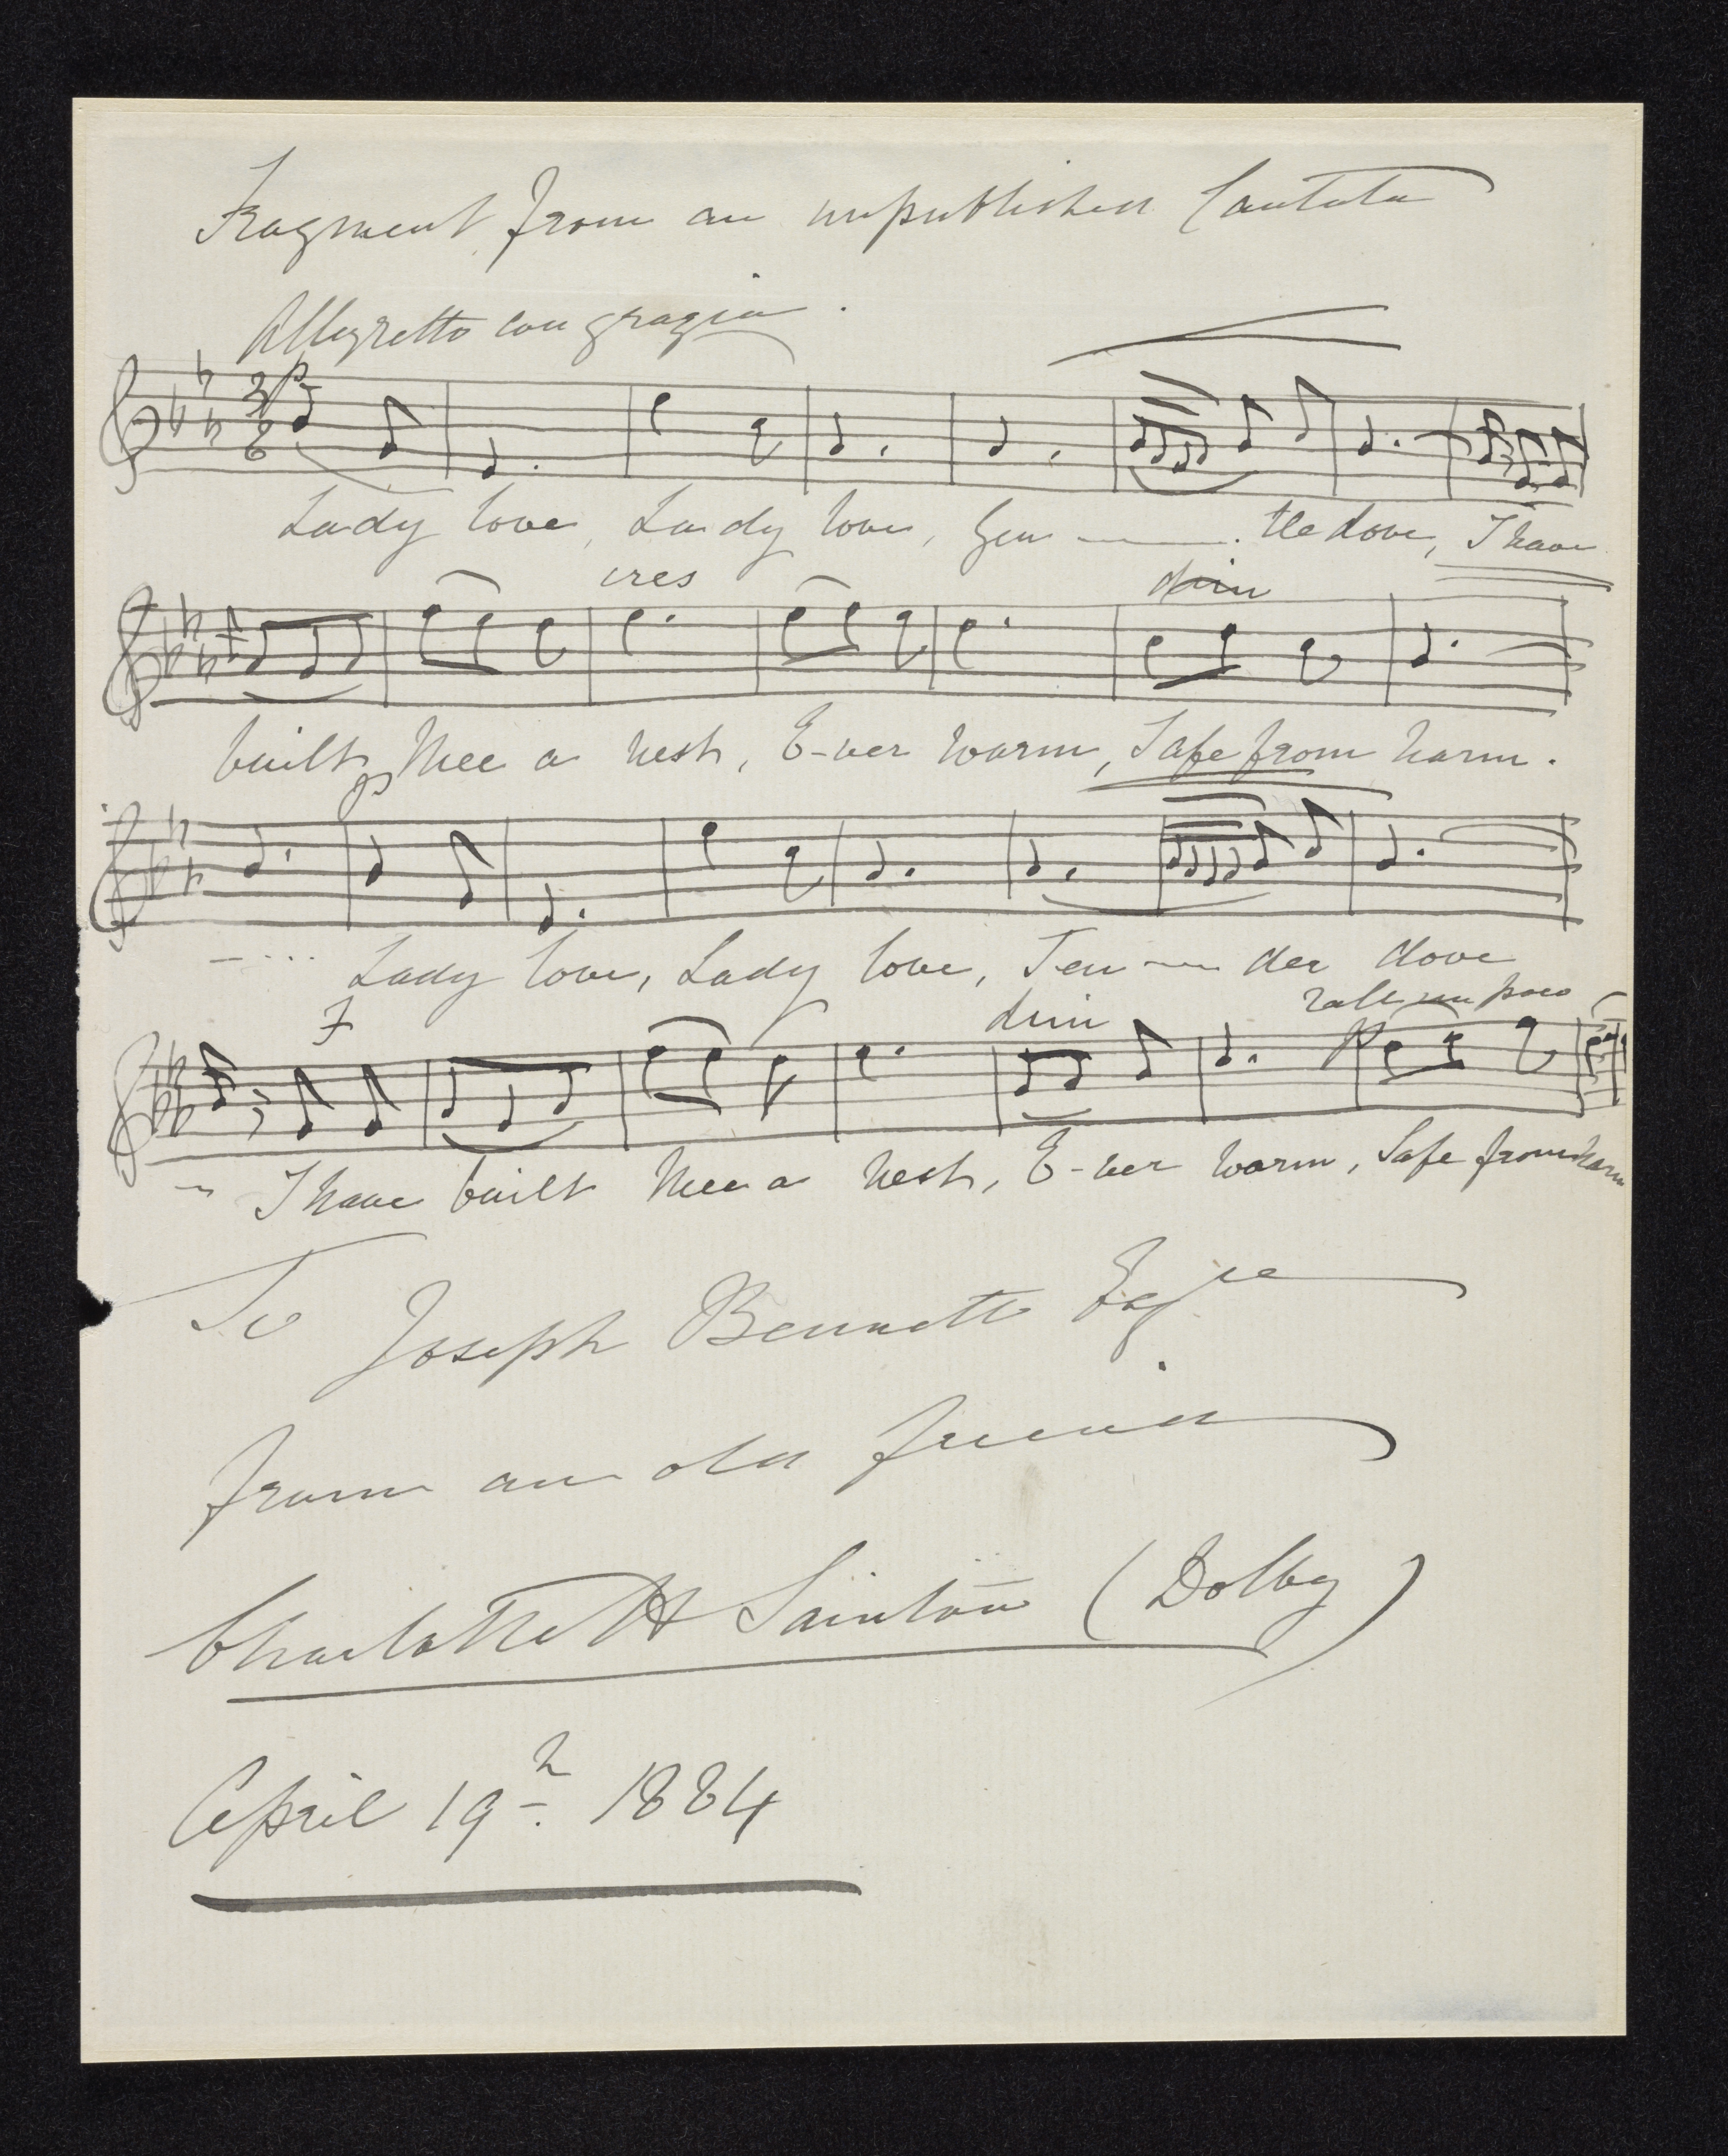 Fragment from an unpublished Cantata
Allegretto con grazia.
p
Lady love, Lady love, Gen — tle dove, I have
cres dim
built thee a nest, E-ver warm, Safe from harm.
p
Lady love, Lady love, Ten — der dove
F dim rall un poco
p
I have built thee a nest, E-ver warm, Safe from harm
To Joseph Bennett Esqre
from an old friend
Charlotte H Sainton (Dolby)
April 19th. 1884